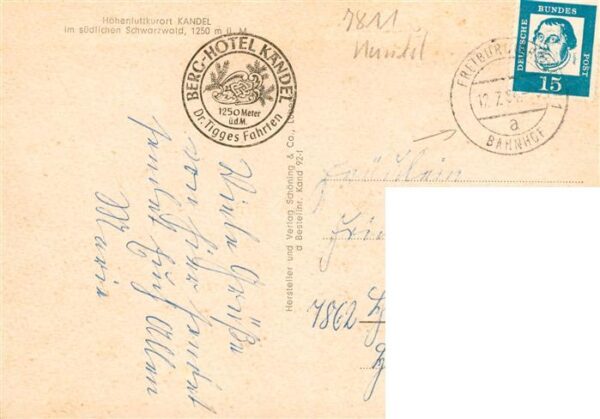 Höhenluftkurort KANDEL
im südlichen Schwarzwald, 1250 m ü. M.
BERG-HOTEL KANDEL
1250 Meter
ü.d.M.
Dr. Tigges Fahrten
7811
DEUTSCHE
BUNDES
POST
15
FREIBURG
12.7.
1
a
BAHNHOF
Hersteller und Verlag Schöning & Co.,
Bestellnr. Kand 92-1
Viele Grüße
von hier sendet
Allen
Maria
Fräulein
7862